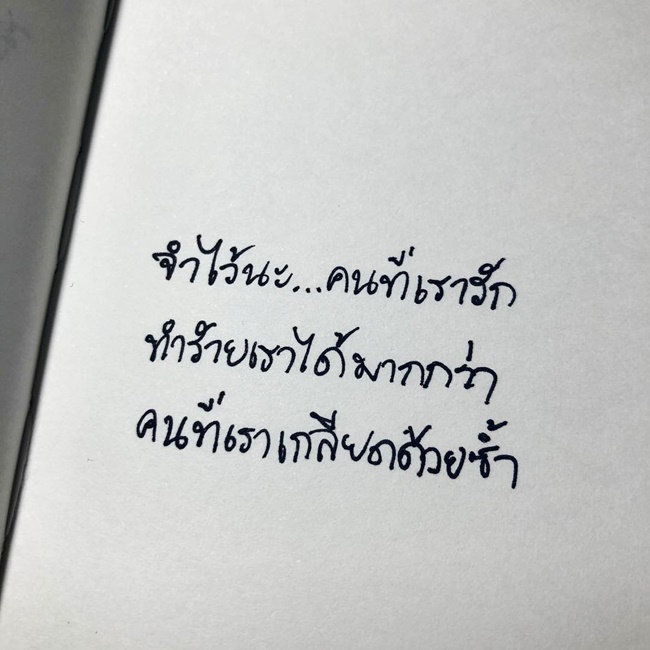 จำไว้นะ...คนที่เรารัก
ทำร้ายเราได้มากกว่า
คนที่เราเกลียดด้วยซ้ำ